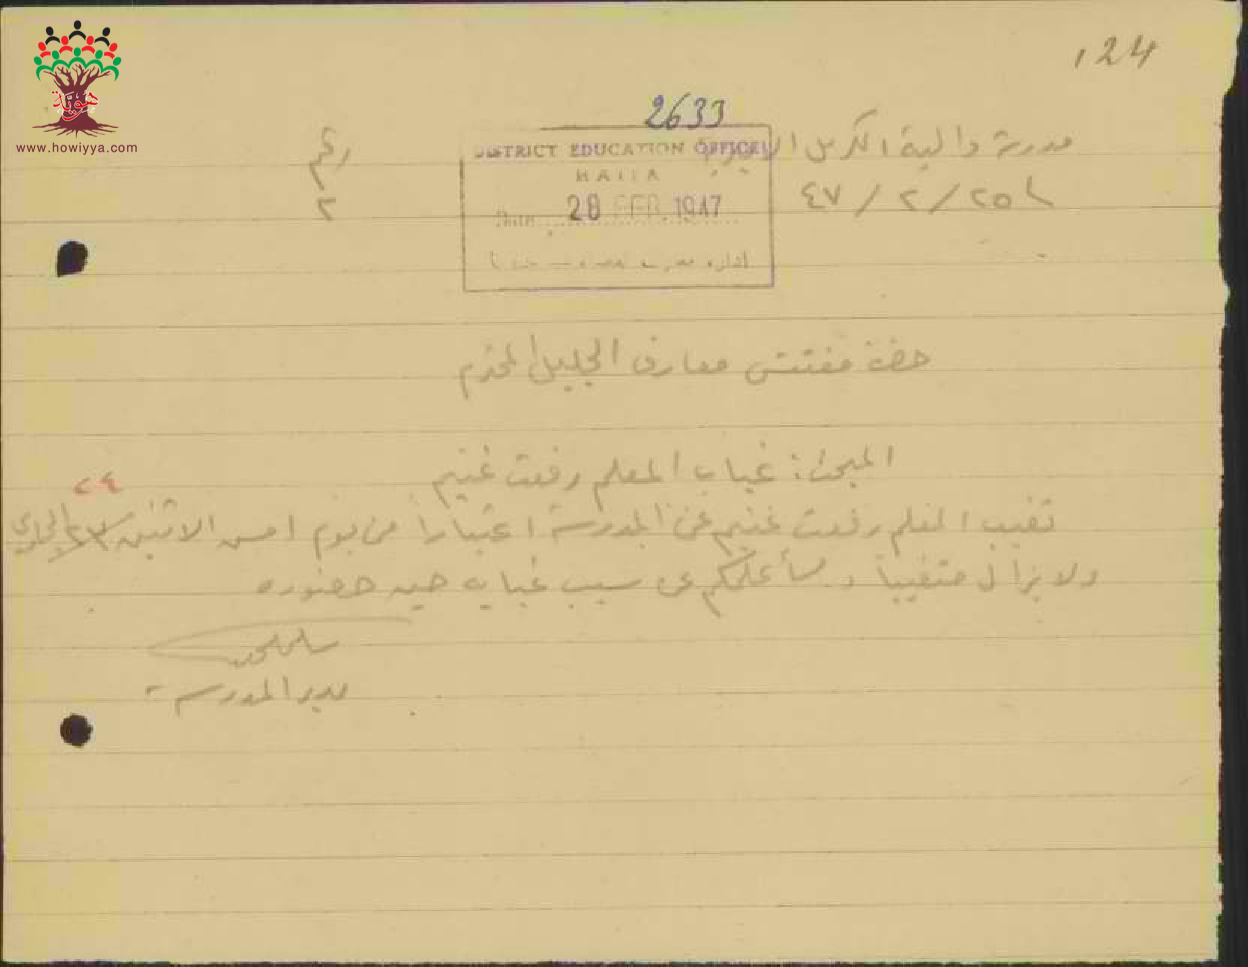 124
هوية
www.howiyya.com
2633
مدرسة دالية الكرمل الاميرية
رقم
٢
DISTRICT EDUCATION OFFICE
HAIFA
Date 28 FEB 1947
٢٥/٢/٤٧
حضرة مفتش معارف الجليل المحترم
المبحث: غياب المعلم رفعت غنيم
٢٤
تغيب المعلم رفعت غنيم عن المدرسة اعتباراً من يوم امس الاثنين الجاري
ولا يزال متغيباً وسأعلمكم عن سبب غيابه حين حضوره
مدير المدرسة